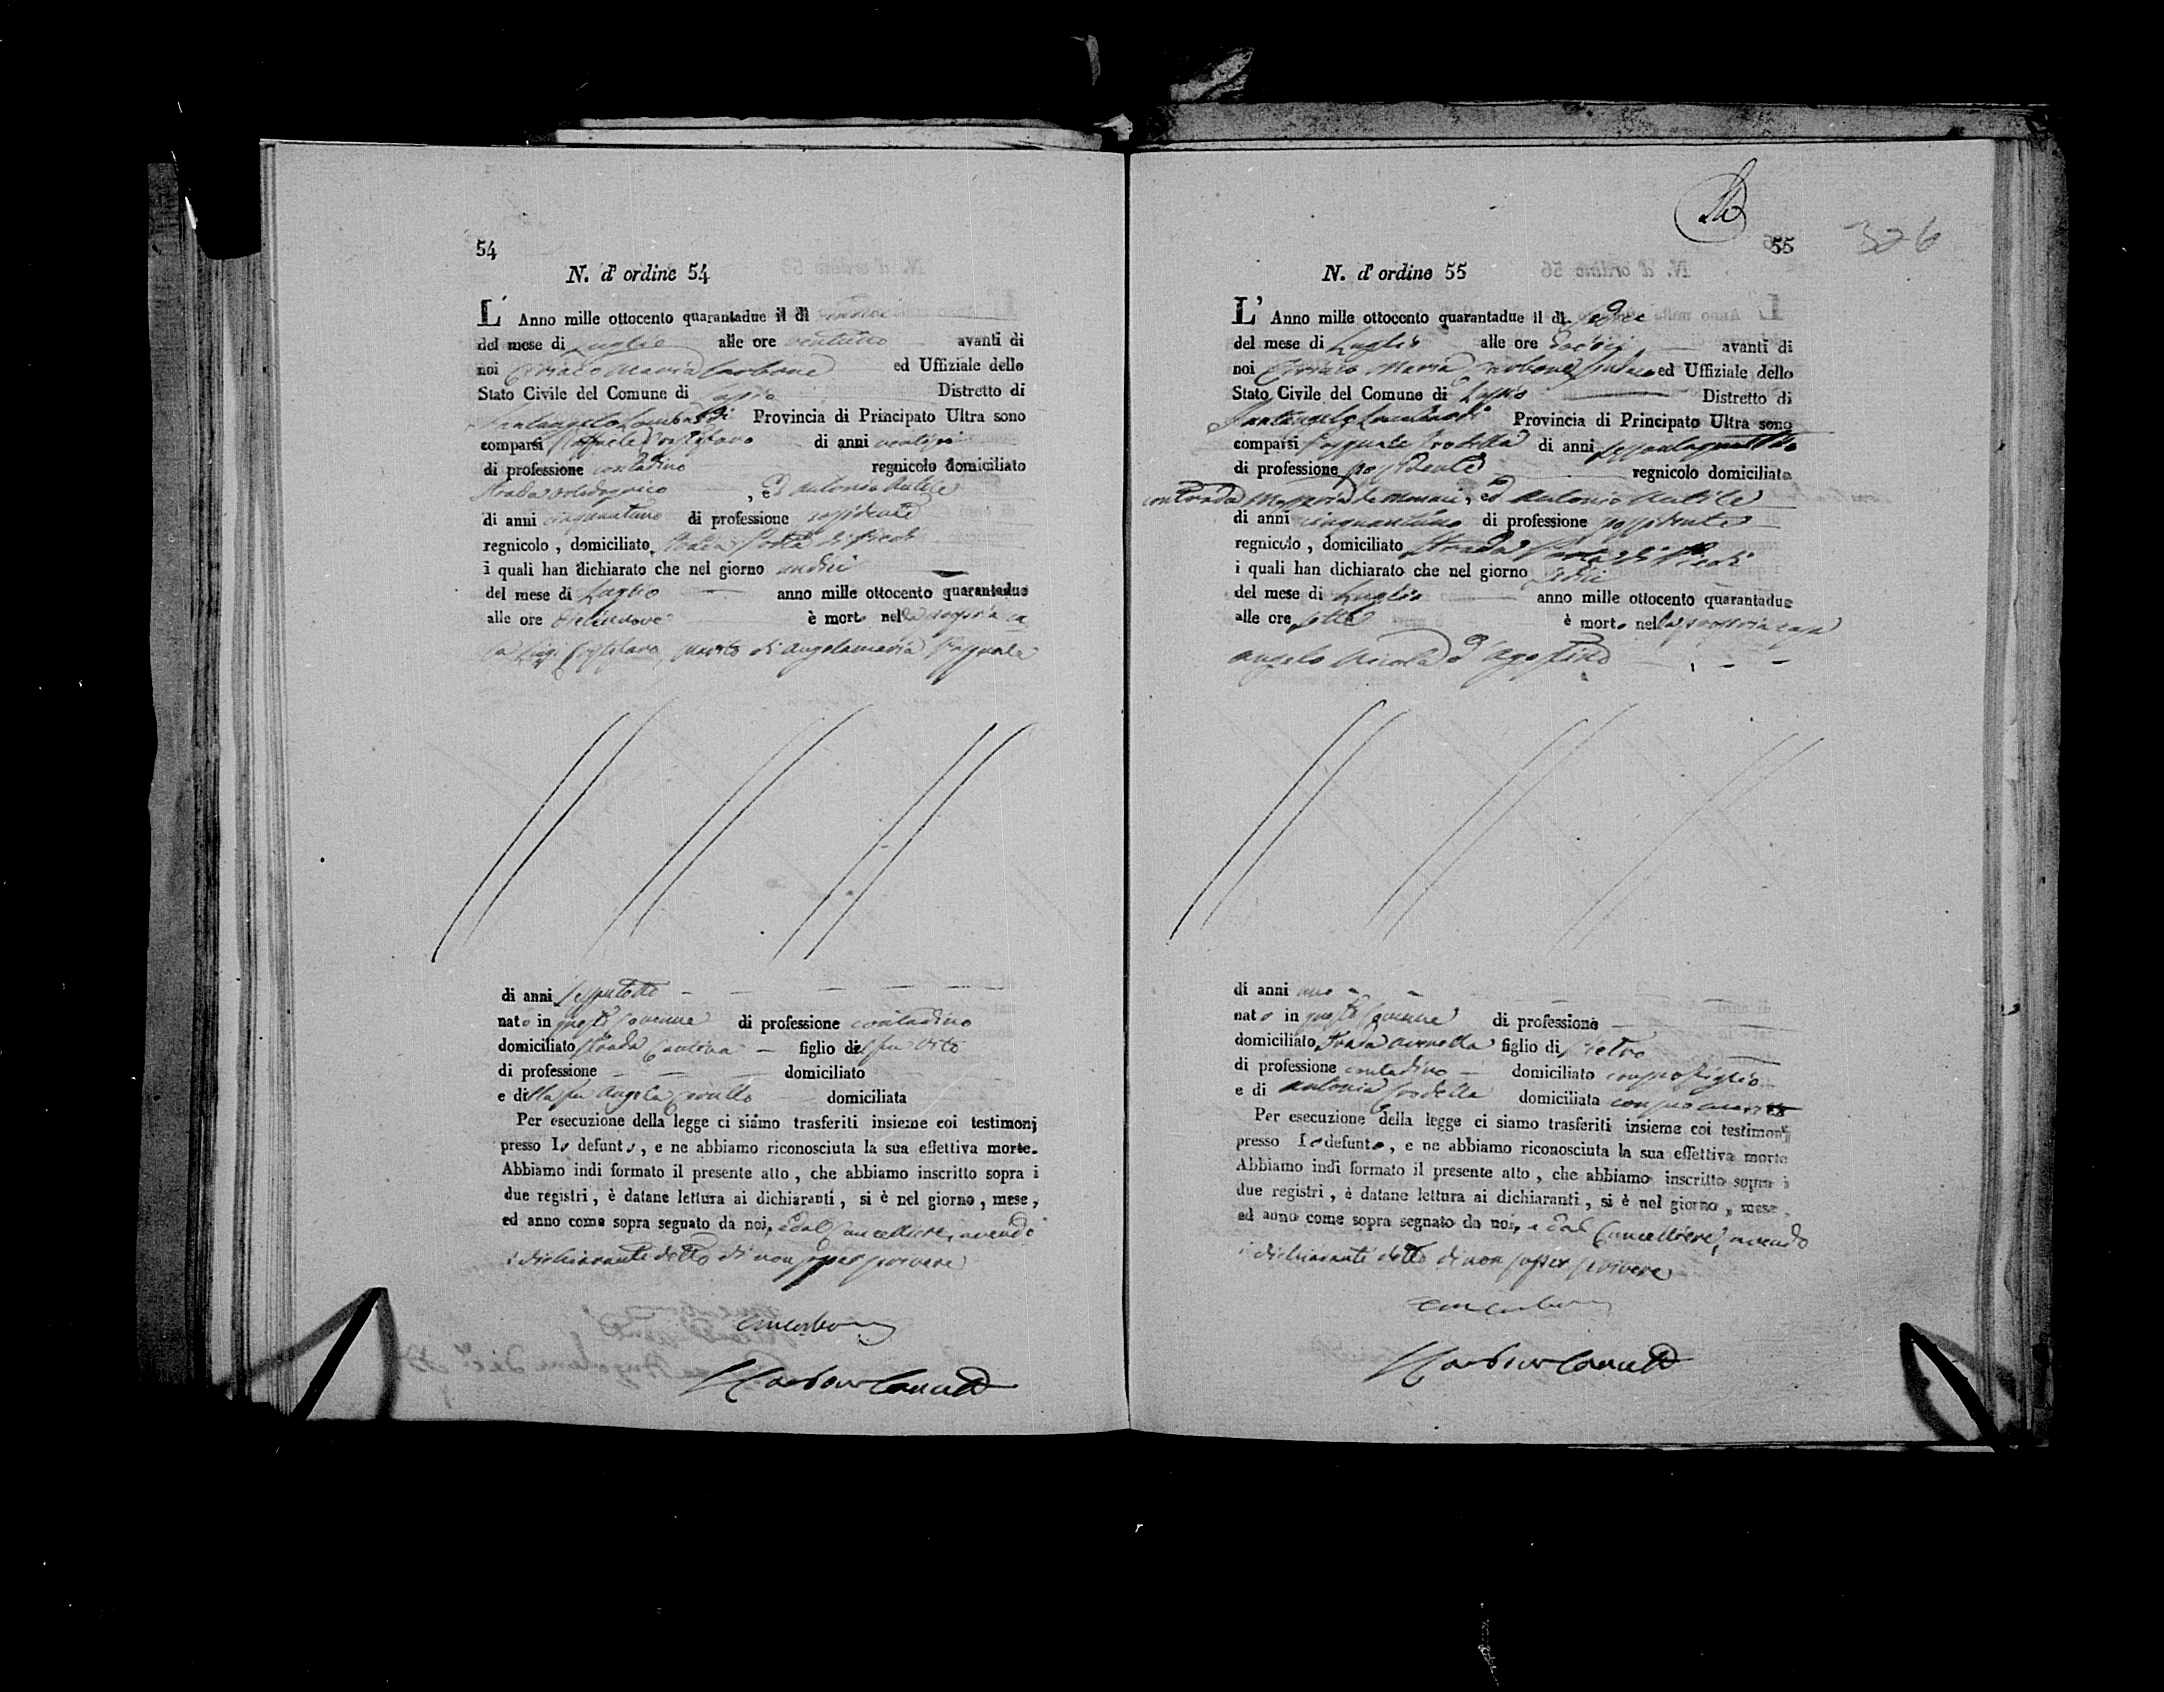 54
N. d' ordine 54
L' Anno mille ottocento quarantadue il dì
del mese di Luglio alle ore ventuno avanti di
noi Ciriaco Maria Carbone ed Uffiziale dello
Stato Civile del Comune di Lapio Distretto di
Santangelo Lombardi Provincia di Principato Ultra sono
comparsi di anni
di professione contadino regnicolo domiciliato
strada , ed Antonio
di anni cinquantuno di professione possidente
regnicolo , domiciliato strada Porta di Piedi
i quali han dichiarato che nel giorno undici
del mese di Luglio anno mille ottocento quarantadue
alle ore diecinnove è morto nella propria ca
marito di Angelamaria Pasquale
di anni
nato in questo Comune di professione contadino
domiciliato strada figlio del fu Vito
di professione domiciliato
e della fu Angela domiciliata
Per esecuzione della legge ci siamo trasferiti insieme coi testimonj
presso lo defunto , e ne abbiamo riconosciuta la sua effettiva morte.
Abbiamo indi formato il presente atto , che abbiamo inscritto sopra i
due registri , è datane lettura ai dichiaranti , si è nel giorno , mese ,
ed anno come sopra segnato da noi, e dal Cancelliere, avendo
i dichiaranti detto di non saper scrivere
55
326
N. d' ordine 55
L' Anno mille ottocento quarantadue il dì sedici
del mese di Luglio alle ore dodici avanti di
noi Ciriaco Maria Carbone Sindaco ed Uffiziale dello
Stato Civile del Comune di Lapio Distretto di
Santangelo Lombardi Provincia di Principato Ultra sono
comparsi Pasquale di anni sessantaquattro
di professione possidente regnicolo domiciliato
contrada , ed Antonio
di anni cinquantuno di professione possidente
regnicolo , domiciliato Strada Porta di Piedi
i quali han dichiarato che nel giorno sedici
del mese di Luglio anno mille ottocento quarantadue
alle ore sette è morto nella propria casa
Angelo Nicola d'Agostino
di anni uno
nato in questo Comune di professione
domiciliato strada figlio di Pietro
di professione contadino domiciliato con suo figlio
e di Antonia domiciliata con suo marito
Per esecuzione della legge ci siamo trasferiti insieme coi testimonj
presso lo defunto , e ne abbiamo riconosciuta la sua effettiva morte
Abbiamo indi formato il presente atto , che abbiamo inscritto sopra i
due registri , è datane lettura ai dichiaranti , si è nel giorno , mese ,
ed anno come sopra segnato da noi, e dal Cancelliere, avendo
i dichiaranti detto di non saper scrivere